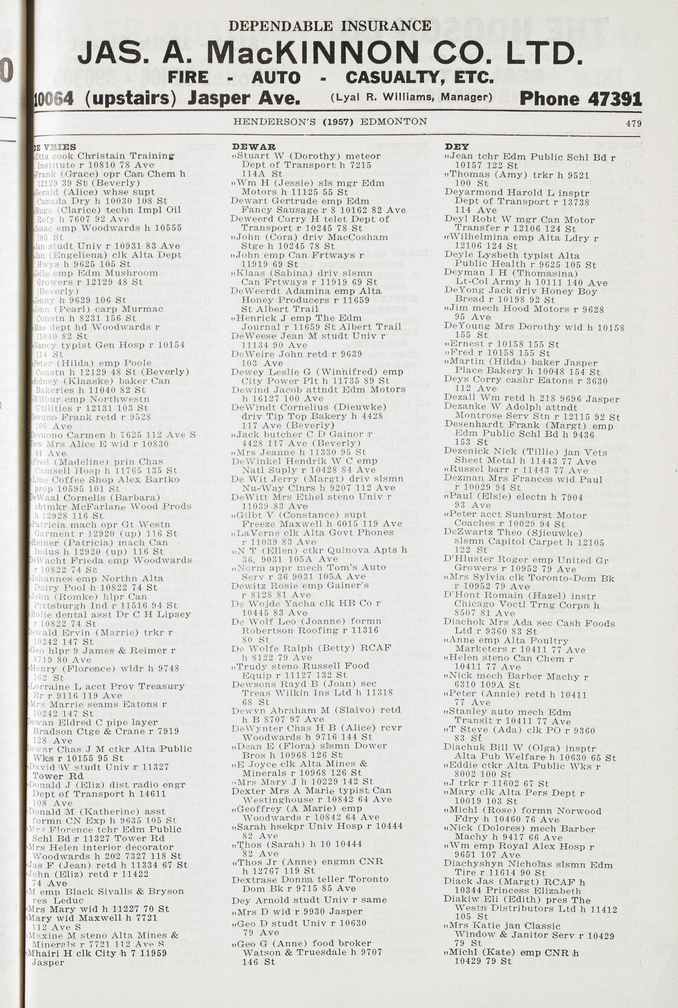 DEPENDABLE INSURANCE
JAS. A. MacKINNON CO. LTD.
FIRE - AUTO - CASUALTY, ETC.
10064 (upstairs) Jasper Ave. (Lyal R. Williams, Manager) Phone 47391
HENDERSON'S (1957) EDMONTON 479
VRIES
cook Christain Training
Institute r 10810 78 Ave
Frank (Grace) opr Can Chem h
12129 39 St (Beverly)
Gerald (Alice) whse supt
Canada Dry h 10030 108 St
(Clarice) techn Impl Oil
Refy h 7607 92 Ave
emp Woodwards h 10555
105 St
Jan studt Univ r 10931 83 Ave
Jan (Engeliena) clk Alta Dept
Hwys h 9625 105 St
emp Edm Mushroom
Growers r 12129 48 St
(Beverly)
h 9629 106 St
John (Pearl) carp Murmac
Constn h 8231 156 St
dept hd Woodwards r
11040 82 St
Nancy typist Gen Hosp r 10154
114 St
Peter (Hilda) emp Poole
Constn h 12129 48 St (Beverly)
(Klaaske) baker Can
Bakeries h 11040 82 St
Wilbur emp Northwestn
Utilities r 12131 103 St
Frank retd r 9528
106 Ave
Carmen h 7625 112 Ave S
Mrs Alice E wid r 10830
Ave
Fred (Madeline) prin Chas
Camsell Hosp h 11765 135 St
Coffee Shop Alex Bartko
prop 10595 101 St
DeWaal Cornelis (Barbara)
cbtmkr McFarlane Wood Prods
h 12928 116 St
Patricia mach opr Gt Westn
Garment r 12920 (up) 116 St
(Patricia) mach Can
Indus h 12920 (up) 116 St
DeWacht Frieda emp Woodwards
r 10822 74 St
Johannes emp Northn Alta
Dairy Pool h 10822 74 St
John (Romke) hlpr Can
Pittsburgh Ind r 11516 94 St
dental asst Dr C H Lipsey
r 10822 74 St
Dewald Ervin (Marrie) trkr r
10242 147 St
Geo hlpr 9 James & Reimer r
4719 80 Ave
Henry (Florence) wldr h 9748
162 St
Lorraine L acct Prov Treasury
Br r 9116 119 Ave
Mrs Marrie seams Eatons r
10242 147 St
Dewan Eldred C pipe layer
Bradson Ctge & Crane r 7919
128 Ave
Dewar Chas J M ctkr Alta Public
Wks r 10155 95 St
David W studt Univ r 11327
Tower Rd
Donald J (Eliz) dist radio engr
Dept of Transport h 14611
108 Ave
Donald M (Katherine) asst
formn CN Exp h 9635 105 St
Mrs Florence tchr Edm Public
Schl Bd r 11327 Tower Rd
Mrs Helen interior decorator
Woodwards h 202 7327 118 St
Jas F (Jean) retd h 11334 67 St
John (Eliz) retd r 11422
74 Ave
M emp Black Sivalls & Bryson
res Leduc
Mrs Mary wid h 11227 70 St
Mary wid Maxwell h 7721
112 Ave S
Maxine M steno Alta Mines &
Minerals r 7721 112 Ave S
Mhairi H clk City h 7 11959
Jasper
DEWAR
"Stuart W (Dorothy) meteor
Dept of Transport h 7215
114A St
"Wm H (Jessie) sls mgr Edm
Motors h 11125 55 St
Dewart Gertrude emp Edm
Fancy Sausage r 8 10162 82 Ave
Deweerd Corry H telet Dept of
Transport r 10245 78 St
"John (Cora) driv MacCosham
Stge h 10245 78 St
"John emp Can Frtways r
11919 69 St
"Klaas (Sabina) driv slsmn
Can Frtways r 11919 69 St
DeWeerdt Adamina emp Alta
Honey Producers r 11659
St Albert Trail
"Henrick J emp The Edm
Journal r 11659 St Albert Trail
DeWeese Jean M studt Univ r
11134 90 Ave
DeWeire John retd r 9639
103 Ave
Dewey Leslie G (Winnifred) emp
City Power Plt h 11735 89 St
Dewind Jacob attndt Edm Motors
h 16127 100 Ave
DeWindt Cornelius (Dieuwke)
driv Tip Top Bakery h 4428
117 Ave (Beverly)
"Jack butcher C D Gainor r
4428 117 Ave (Beverly)
"Mrs Jeanne h 11330 95 St
DeWinkel Hendrik W C emp
Natl Suply r 10428 84 Ave
De Wit Jerry (Margt) driv slsmn
Nu-Way Clnrs h 9207 112 Ave
DeWitt Mrs Ethel steno Univ r
11039 83 Ave
"Gilbt V (Constance) supt
Freeze Maxwell h 6015 119 Ave
"LaVerne clk Alta Govt Phones
r 11039 83 Ave
"N T (Ellen) ctkr Quinova Apts h
36, 9031 105A Ave
"Norm appr mech Tom's Auto
Serv r 36 9031 105A Ave
Dewitz Rosie emp Gainer's
r 8128 81 Ave
De Wojde Yacha clk HB Co r
10445 83 Ave
De Wolf Leo (Joanne) formn
Robertson Roofing r 11316
80 St
De Wolfe Ralph (Betty) RCAF
h 8122 79 Ave
"Trudy steno Russell Food
Equip r 11127 132 St
Dewsons Rayd B (Joan) sec
Treas Wilkin Ins Ltd h 11318
68 St
Dewyn Abraham M (Slaivo) retd
h B 8707 97 Ave
DeWynter Chas H B (Alice) rcvr
Woodwards h 9716 144 St
"Dean E (Flora) slsmn Dower
Bros h 10968 126 St
"E Joyce clk Alta Mines &
Minerals r 10968 126 St
"Mrs Mary J h 10229 142 St
Dexter Mrs A Marie typist Can
Westinghouse r 10842 64 Ave
"Geoffrey (A Marie) emp
Woodwards r 10842 64 Ave
"Sarah hsekpr Univ Hosp r 10444
82 Ave
"Thos (Sarah) h 10 10444
82 Ave
"Thos Jr (Anne) engmn CNR
h 12767 119 St
Dextrase Donna teller Toronto
Dom Bk r 9715 85 Ave
Dey Arnold studt Univ r same
"Mrs D wid r 9930 Jasper
"Geo D studt Univ r 10630
79 Ave
"Geo G (Anne) food broker
Watson & Truesdale h 9707
146 St
DEY
"Jean tchr Edm Public Schl Bd r
10157 122 St
"Thomas (Amy) trkr h 9521
100 St
Deyarmond Harold L insptr
Dept of Transport r 13738
114 Ave
Deyl Robt W mgr Can Motor
Transfer r 12106 124 St
"Wilhelmina emp Alta Ldry r
12106 124 St
Deyle Lysbeth typist Alta
Public Health r 9625 105 St
Deyman I H (Thomasina)
Lt-Col Army h 10111 140 Ave
DeYong Jack driv Honey Boy
Bread r 10198 92 St
"Jim mech Hood Motors r 9628
95 Ave
DeYoung Mrs Dorothy wid h 10158
155 St
"Ernest r 10158 155 St
"Fred r 10158 155 St
"Martin (Hilda) baker Jasper
Place Bakery h 10048 154 St
Deys Corry cashr Eatons r 3630
112 Ave
Dezall Wm retd h 218 9696 Jasper
Dezanke W Adolph attndt
Montrose Serv Stn r 12115 92 St
Desenhardt Frank (Margt) emp
Edm Public Schl Bd h 9436
153 St
Dezenick Nick (Tillie) jan Vets
Sheet Metal h 11443 77 Ave
"Russel barr r 11443 77 Ave
Dezman Mrs Frances wid Paul
r 10029 94 St
"Paul (Elsie) electn h 7904
93 Ave
"Peter acct Sunburst Motor
Coaches r 10029 94 St
DeZwartz Theo (Sjieuwke)
slsmn Capitol Carpet h 12105
122 St
D'Hluster Roger emp United Gr
Growers r 10952 79 Ave
"Mrs Sylvia clk Toronto-Dom Bk
r 10952 79 Ave
D'Hont Romain (Hazel) instr
Chicago Voctl Trng Corpn h
8507 81 Ave
Diachok Mrs Ada sec Cash Foods
Ltd r 9360 83 St
"Anne emp Alta Poultry
Marketers r 10411 77 Ave
"Helen steno Can Chem r
10411 77 Ave
"Nick mech Barber Machy r
6310 109A St
"Peter (Annie) retd h 10411
77 Ave
"Stanley auto mech Edm
Transit r 10411 77 Ave
"T Steve (Ada) clk PO r 9360
83 St
Diachuk Bill W (Olga) insptr
Alta Pub Welfare h 10630 65 St
"Eddie ctkr Alta Public Wks r
8002 100 St
"J trkr r 11602 67 St
"Mary clk Alta Pers Dept r
10019 103 St
"Michl (Rose) formn Norwood
Fdry h 10460 76 Ave
"Nick (Dolores) mech Barber
Machy h 9417 66 Ave
"Wm emp Royal Alex Hosp r
9651 107 Ave
Diachyshyn Nicholas slsmn Edm
Tire r 11614 90 St
Diack Jas (Margt) RCAF h
10344 Princess Elizabeth
Diakiw Eli (Edith) pres The
Westn Distributors Ltd h 11412
105 St
"Mrs Katie jan Classic
Window & Janitor Serv r 10429
79 St
"Michl (Kate) emp CNR h
10429 79 St